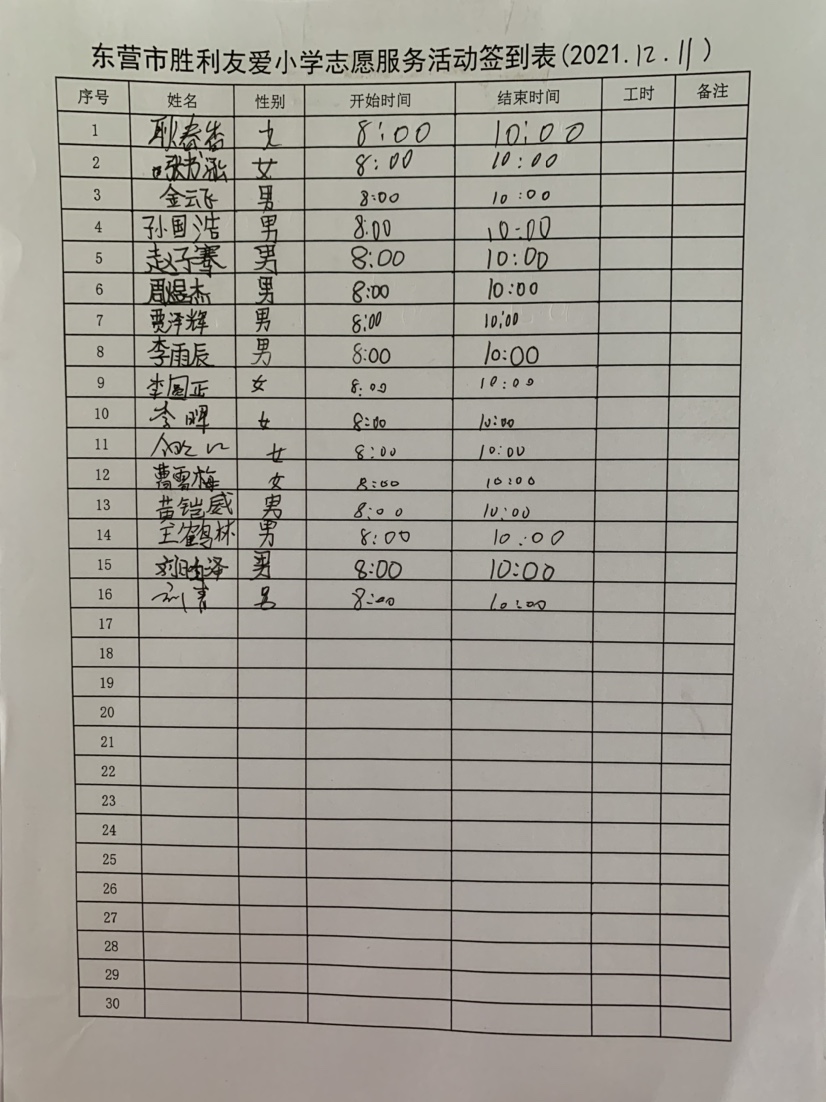 东营市胜利友爱小学志愿服务活动签到表(2021.12.11)
序号 姓名 性别 开始时间 结束时间 工时 备注
1 耿春杏 女 8:00 10:00
2 女 8:00 10:00
3 金云飞 男 8:00 10:00
4 孙国浩 男 8:00 10:00
5 赵子骞 男 8:00 10:00
6 周煜杰 男 8:00 10:00
7 贾泽辉 男 8:00 10:00
8 李雨辰 男 8:00 10:00
9 李圆正 女 8:00 10:00
10 李晖 女 8:00 10:00
11 女 8:00 10:00
12 曹雪梅 女 8:00 10:00
13 黄铠威 男 8:00 10:00
14 王鹤林 男 8:00 10:00
15 男 8:00 10:00
16 刘青 男 8:00 10:00
17
18
19
20
21
22
23
24
25
26
27
28
29
30